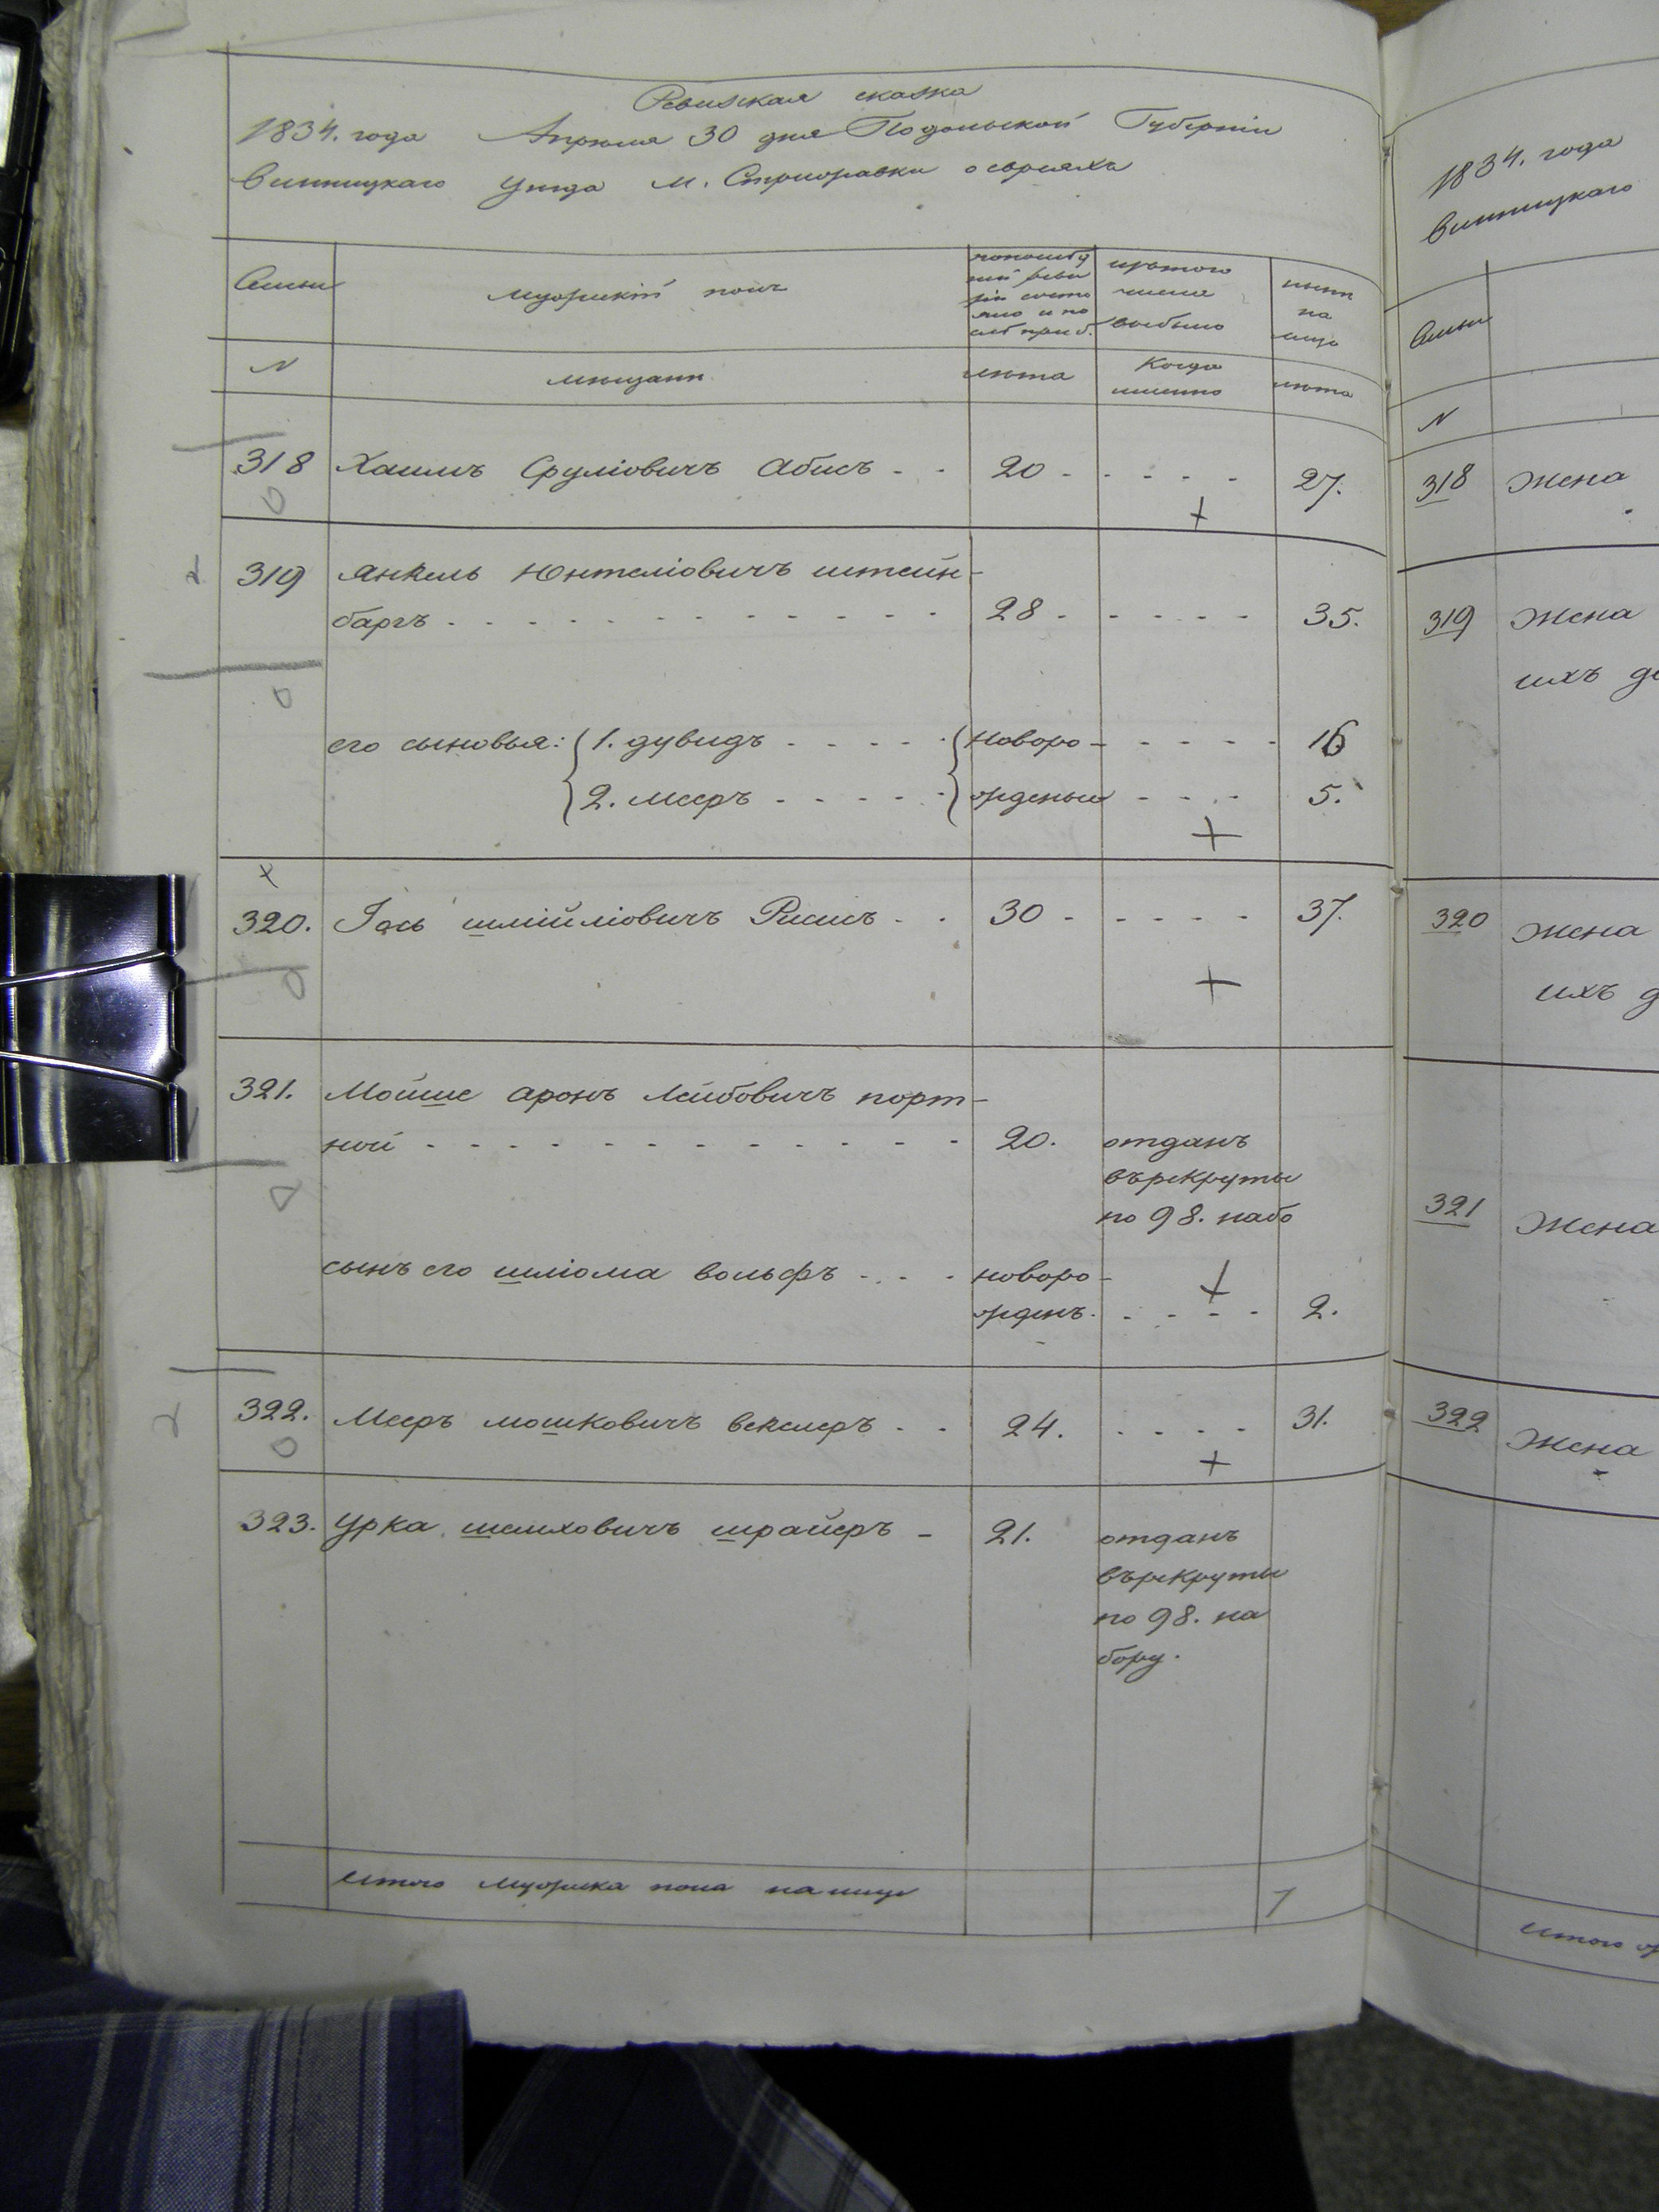 Ревизская сказка
1834. года Апреля 30 дня Подольской Губерніи
Винницкаго Уезда м. Стрижавки о евреяхъ
Семьи
мужскій полъ
изътого числа выбыло
ныне на лицо
N
мещане
лета
Когда именно
лета
318 Хаимъ Сруліовичъ Абисъ - - 20 - - - - - 27.
319 Янкель Юнтеліовичъ штейн-
баргъ - - - - 28 - - - - - 35.
его сыновья: 1. дувидъ - - - - новоро- - - - - 16
2. мееръ - - - - жденыи - - - 5.
320. Іось шлійліовичъ Рисисъ - - 30 - - - - - 37.
321. Мойше аронъ Лейбовичъ порт-
ной - - - - 20. отданъ
върекруты
по 98. набо
сынъ его шліома вольфъ - - - новоро-
жденъ. - - - - 2.
322. Мееръ мошковичъ векслеръ - - 24. - - - - 31.
323. Урка шлиховичъ шрайеръ - 21. отданъ
върекруты
по 98. на
бору.
итого мужска пола налицо 7
1834. года
Винницкаго
Семьи
N
318 Жена
319 Жена
ихъ
320 Жена
ихъ
321 Жена
322 Жена
итого